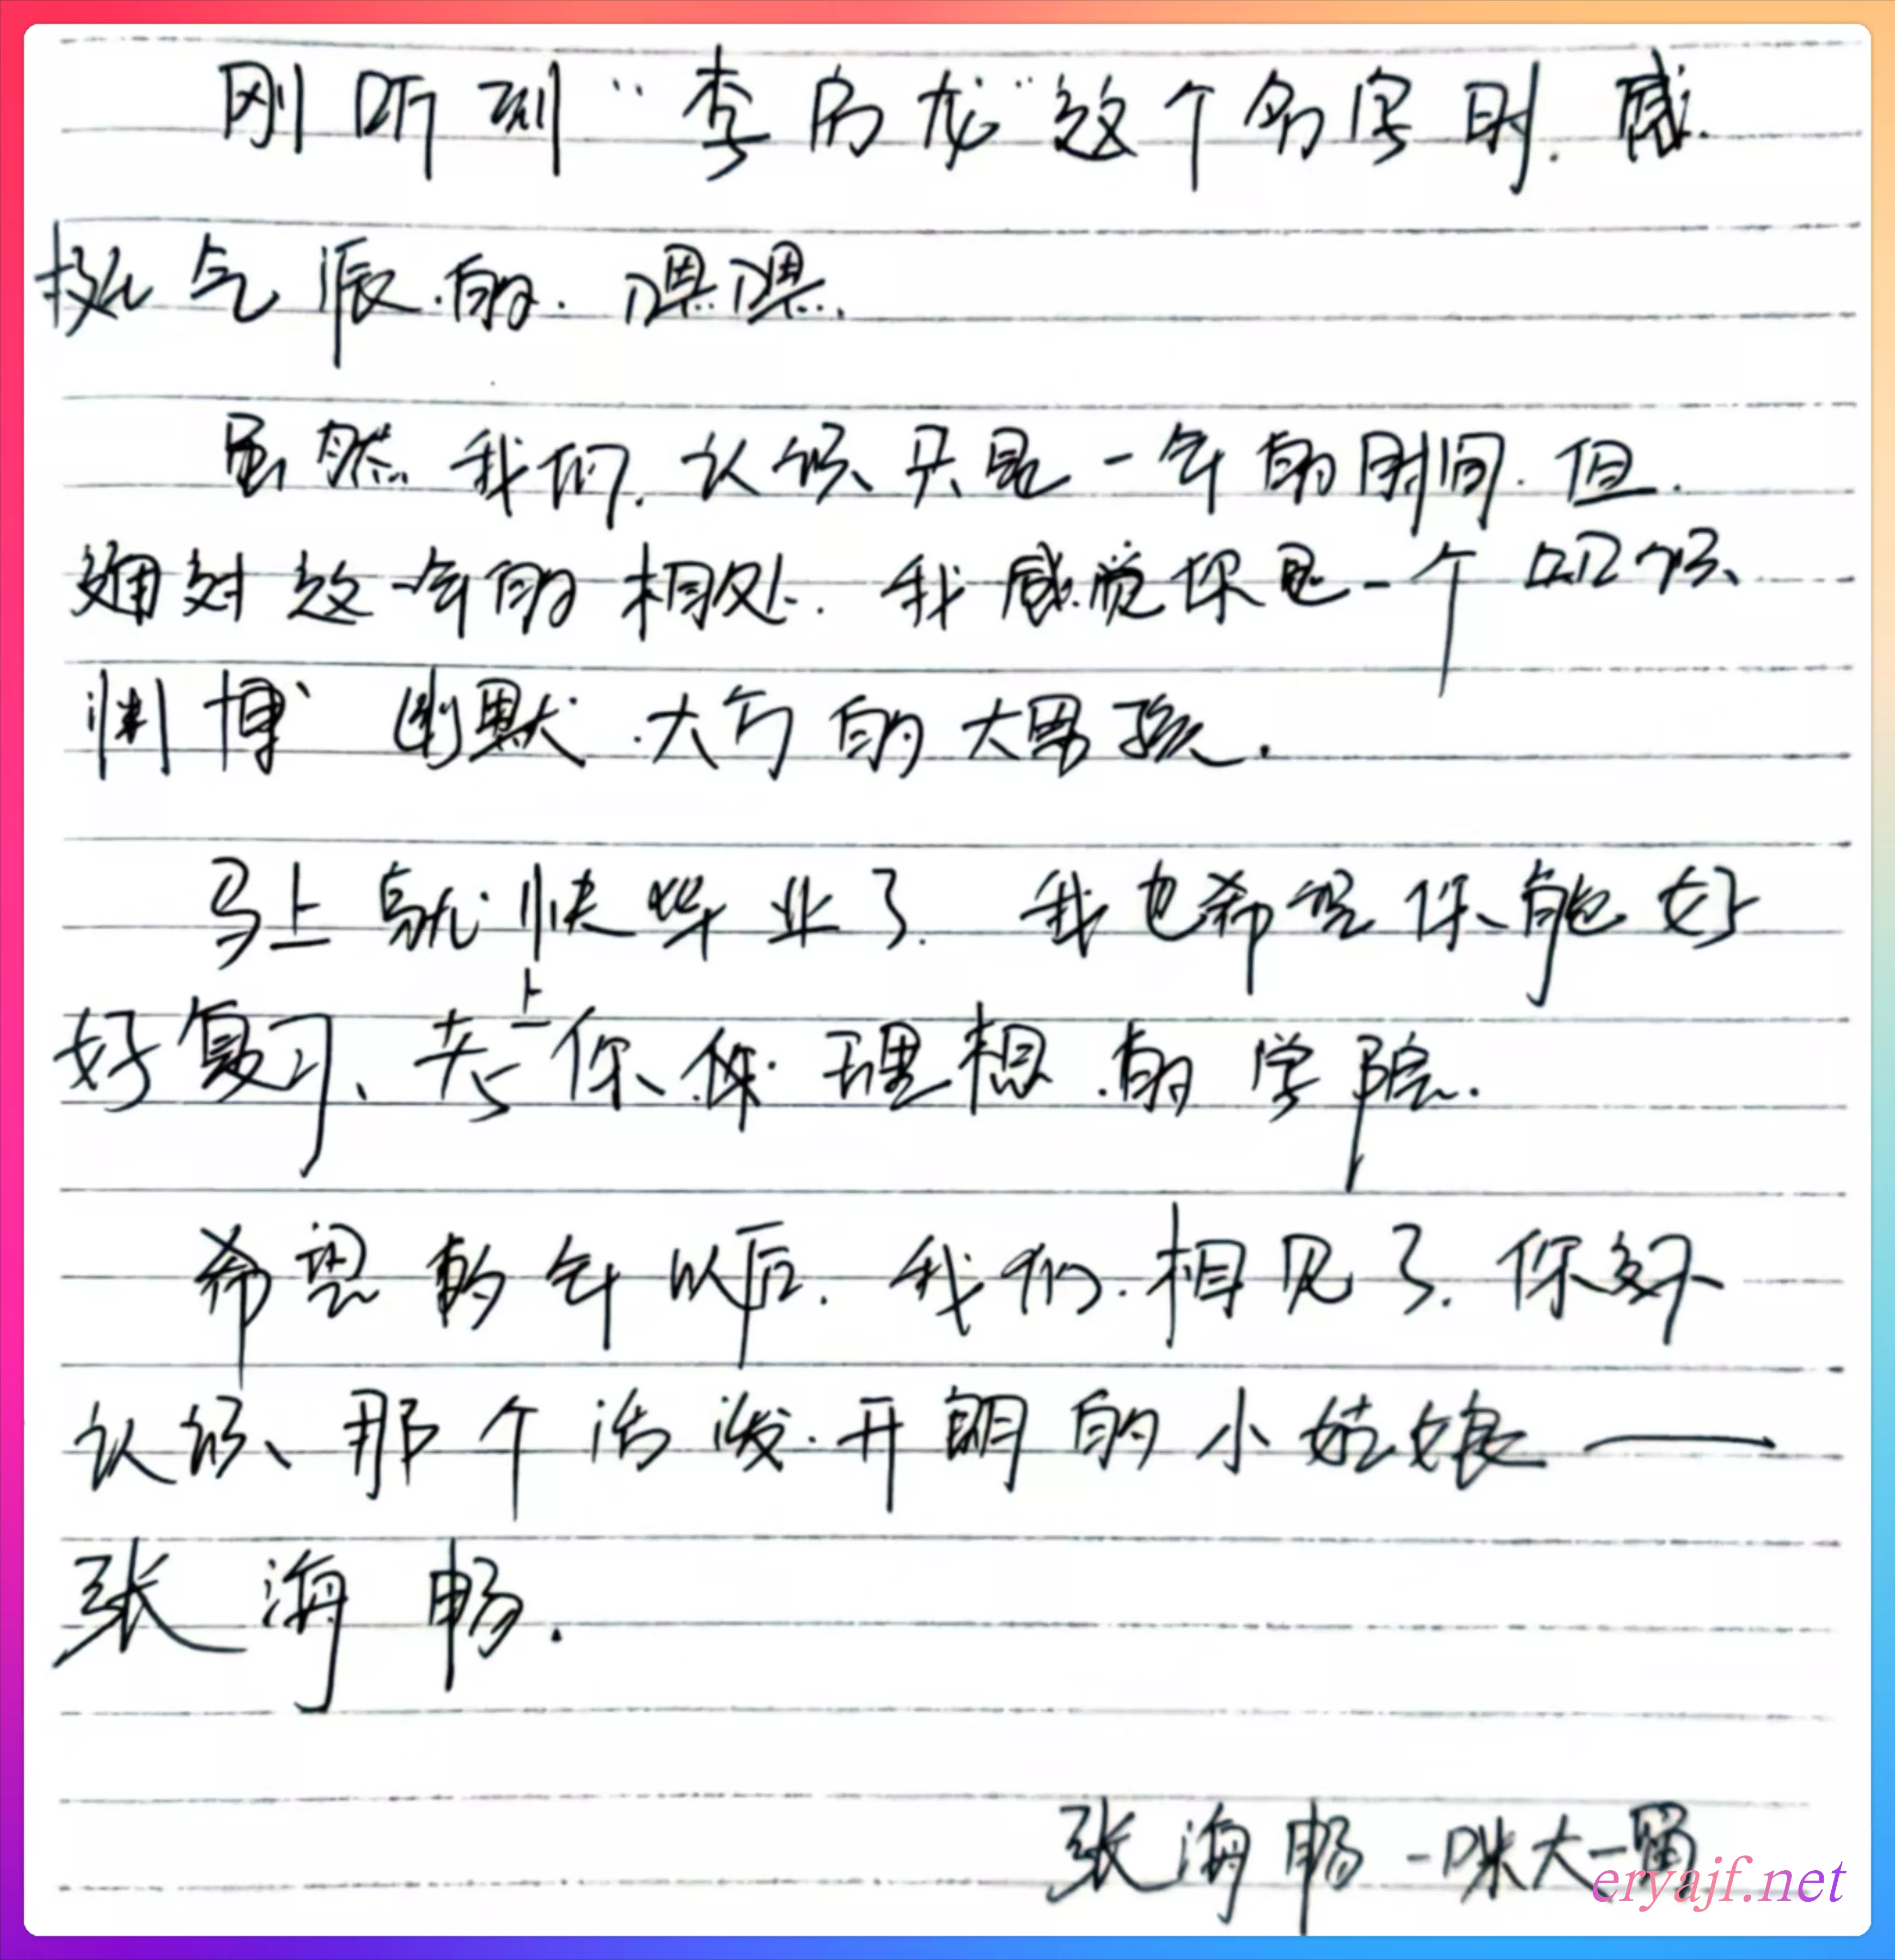 刚听到“李启龙”这个名字时.感
挺气派的.嘿嘿.
虽然我们.认识只是一年的时间.但.
通过这一年的相处.我感觉你是一个知识
渊博 幽默.大方的大男孩.
马上就快毕业了.我也希望你能好
好复习、去上你 理想的学院.
希望 年以后.我们.相见了.你还
认识、那个活泼.开朗的小姑娘——
张海畅.
张海畅-
eryajf.net